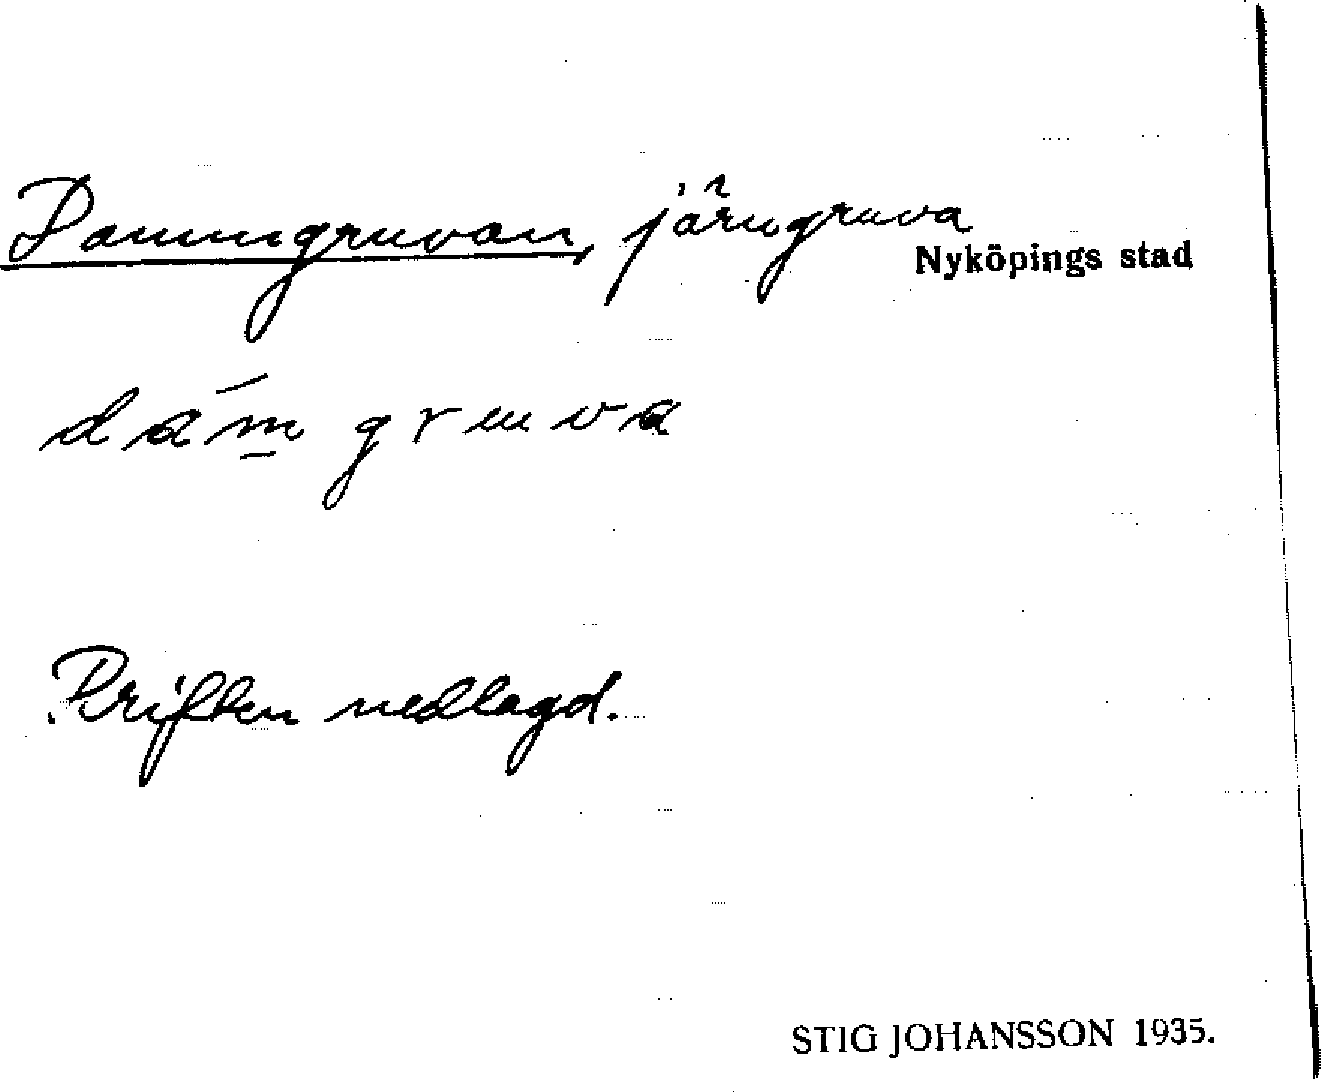 Dammgruvan, järngruva
Nyköpings stad
dám̲ gruva
Driften nedlagd.
STIG JOHANSSON 1935.